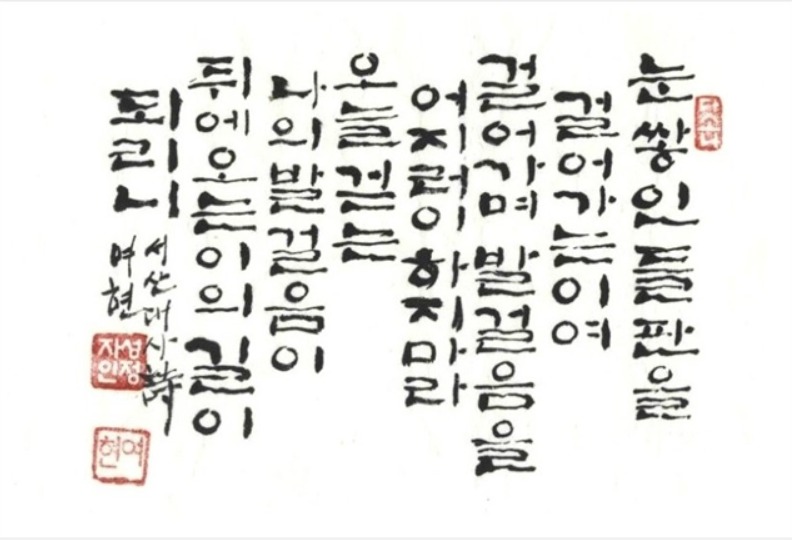 눈 쌓인 들판을
걸어가는 이여
걸어가며 발걸음을
어지러이 하지 마라
오늘 걷는
나의 발걸음이
뒤에 오는 이의 길이
되리니
서산대사 詩
여현
자성
인정
여현